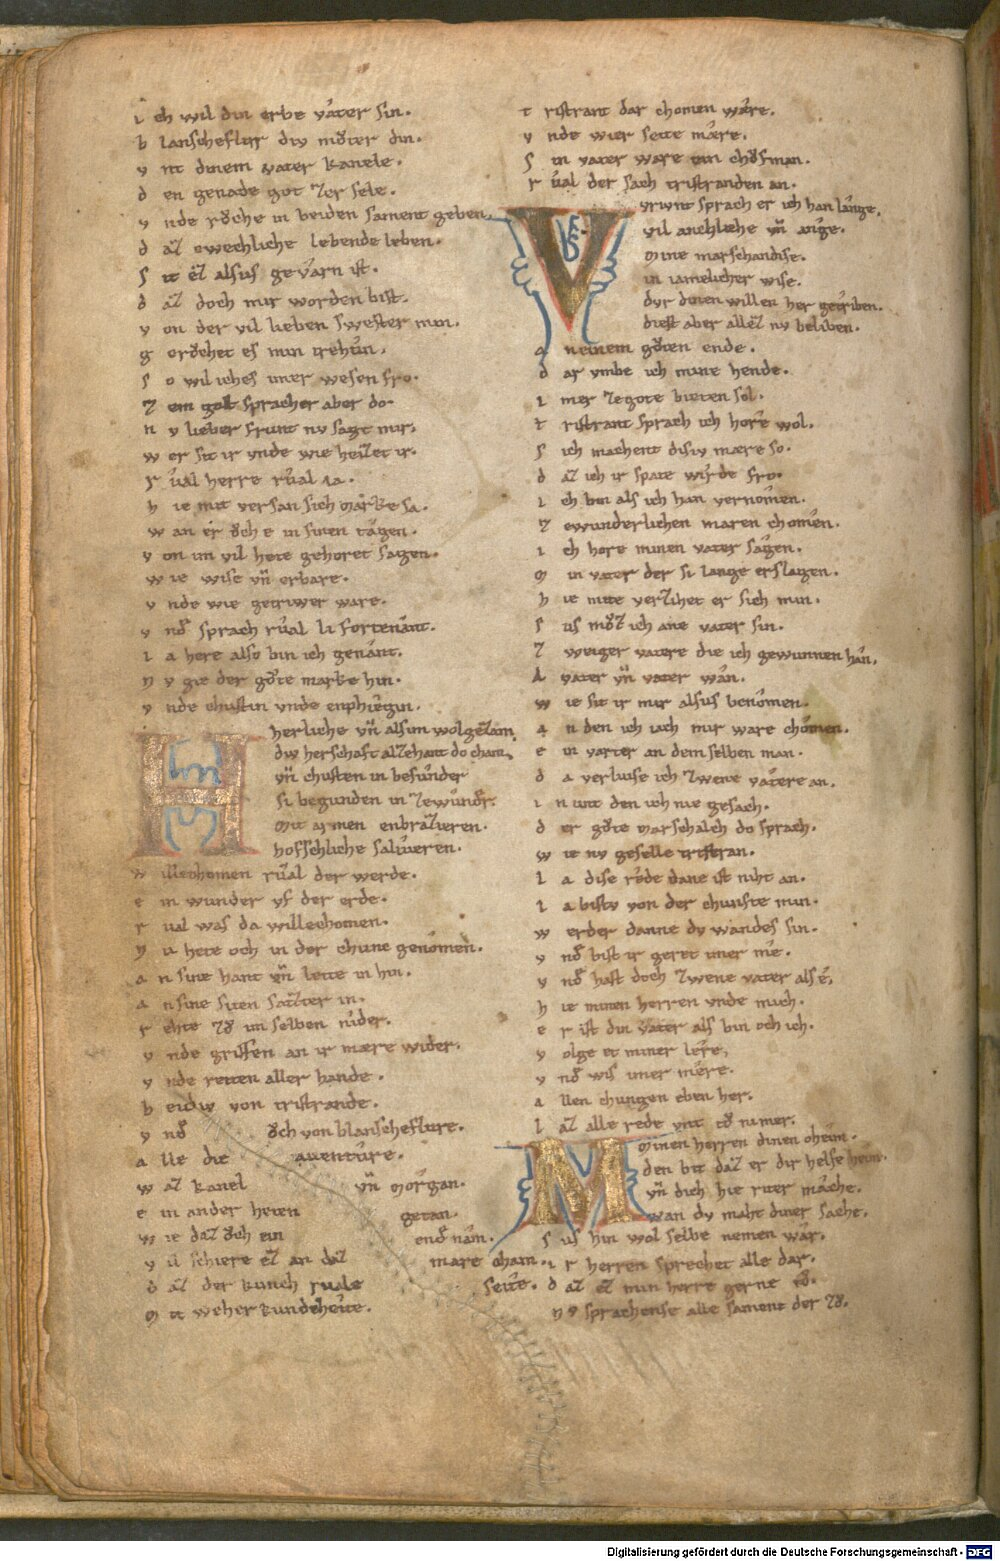 i ch wil din erbe vater sin.
b lanscheflur div můter din.
v nt dinem vater kanele.
d en genade got zer sele.
v nde růche in beiden sament geben
d az ewechliche lebende leben.
s it ez alsus gevarn ist.
d az doch mir worden bist.
v on der vil lieben swester min.
g erůchet es min trehtin.
s o wil iches imer wesen fro.
z em gast spracher aber do.
n v lieber frunt nv sagt mir.
w er sit ir vnde wie heizet ir.
r ůal herre růal ia.
h ie mit versan sich marke sa.
w an er ǒch e in sinen tagen.
v on im vil hete gehoret sagen.
w ie wise vn̄ erbare.
v nde wie getriwer ware.
v nd sprach růal li fortenant.
i a here also bin ich genant.
n v gie der gůte marke hin.
v nde chustin vnde enphiegin.
H herliche vn̄ als im wol gezam.
div herschaft alzehant do cham.
vn̄ chusten in besunder
si begunden in zewunder.
mit armen enbrazieren.
hofschliche salvieren.
w illechomen růal der werde.
e in wunder vf der erde.
r ual was da willechomen.
m in hete och in der chunc genomen.
a n sine hant vn̄ leite in hin.
a n sine siten sazter in.
r ehte zů im selben nider.
v nde griffen an ir mære wider.
v nde reiten aller hande.
b eidiv von tristrande.
v nd ǒch von blanscheflure.
a lle die aventure.
w az kanel vn̄ morgan.
e in ander heten getan.
w ie daz ǒch ein end nam.
v il schiere ez an daz mare cham.
d az der kunch ruale seite.
m it weher kundeheite.
t ristrant dar chomen ware.
v nde wier seite mære.
s in vater ware ein chǒfman.
r ůal der sach tristranden an.
V vriwnt sprach er ich han lange.
vil anchliche vn̄ ange.
mine marschandise.
in iamelicher wise.
dvr dinen willen her getriben.
diest aber allez nv beliben.
a n einem gůten ende.
d ar vmbe ich mine hende.
i mer ze gote bieten sol.
t ristrant sprach ich hore wol.
s ich machent disiv mære so.
d az ich ir spate wirde fro.
i ch bin als ich han vernomen.
z ewunderlichen maren chomen.
i ch hore minen vater sagen.
m in vater der si lange erslagen.
h ie mite verzihet er sich min.
s us můz ich ane vater sin.
z weiger vatere die ich gewunnen han.
A vater vn̄ vater wan.
w ie sit ir mir alsus benomen.
a n den ich iach mir ware chomen.
e in varter an dem selben man.
d a verliuse ich zwene vatere an.
i n vnt den ich nie gesach.
d er gůte marschalch do sprach.
w ie nv geselle tristran.
l a dise rede dane ist niht an.
l a bistv von der chunfte min.
w erder danne dv wandes sin.
v nd bist ir geret imer me.
v nd hast doch zwene vater als e.
h ie minen herren vnde mich.
e r ist din vater als bin och ich.
v olge et miner lere,
v nd wis imer mere.
a llen chungen eben her.
l az alle rede vnt tů nimer.
M minen herren dinen oheim.
den bit daz er dir helfe heim.
vn̄ dich hie riter mache.
wan dv maht diner sache.
s us hin wol selbe nemen war.
i r herren sprechet alle dar.
d az ez min herre gerne tů.
nv sprachense alle sament der zů.
Digitalisierung gefördert durch die Deutsche Forschungsgemeinschaft - DFG